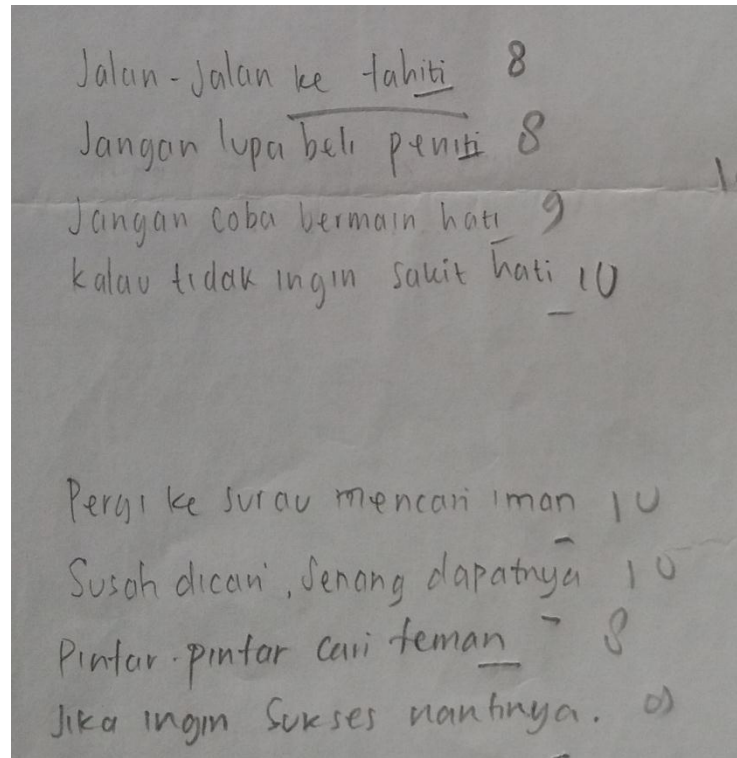 Jalan-Jalan ke tahiti 8
Jangan lupa beli peniti 8
Jangan coba bermain hati 9
kalau tidak ingin sakit hati 10
Pergi ke surau mencari iman 10
Susah dicari, Senang dapatnya 10
Pintar-pintar cari teman 8
Jika ingin Sukses nantinya. 9